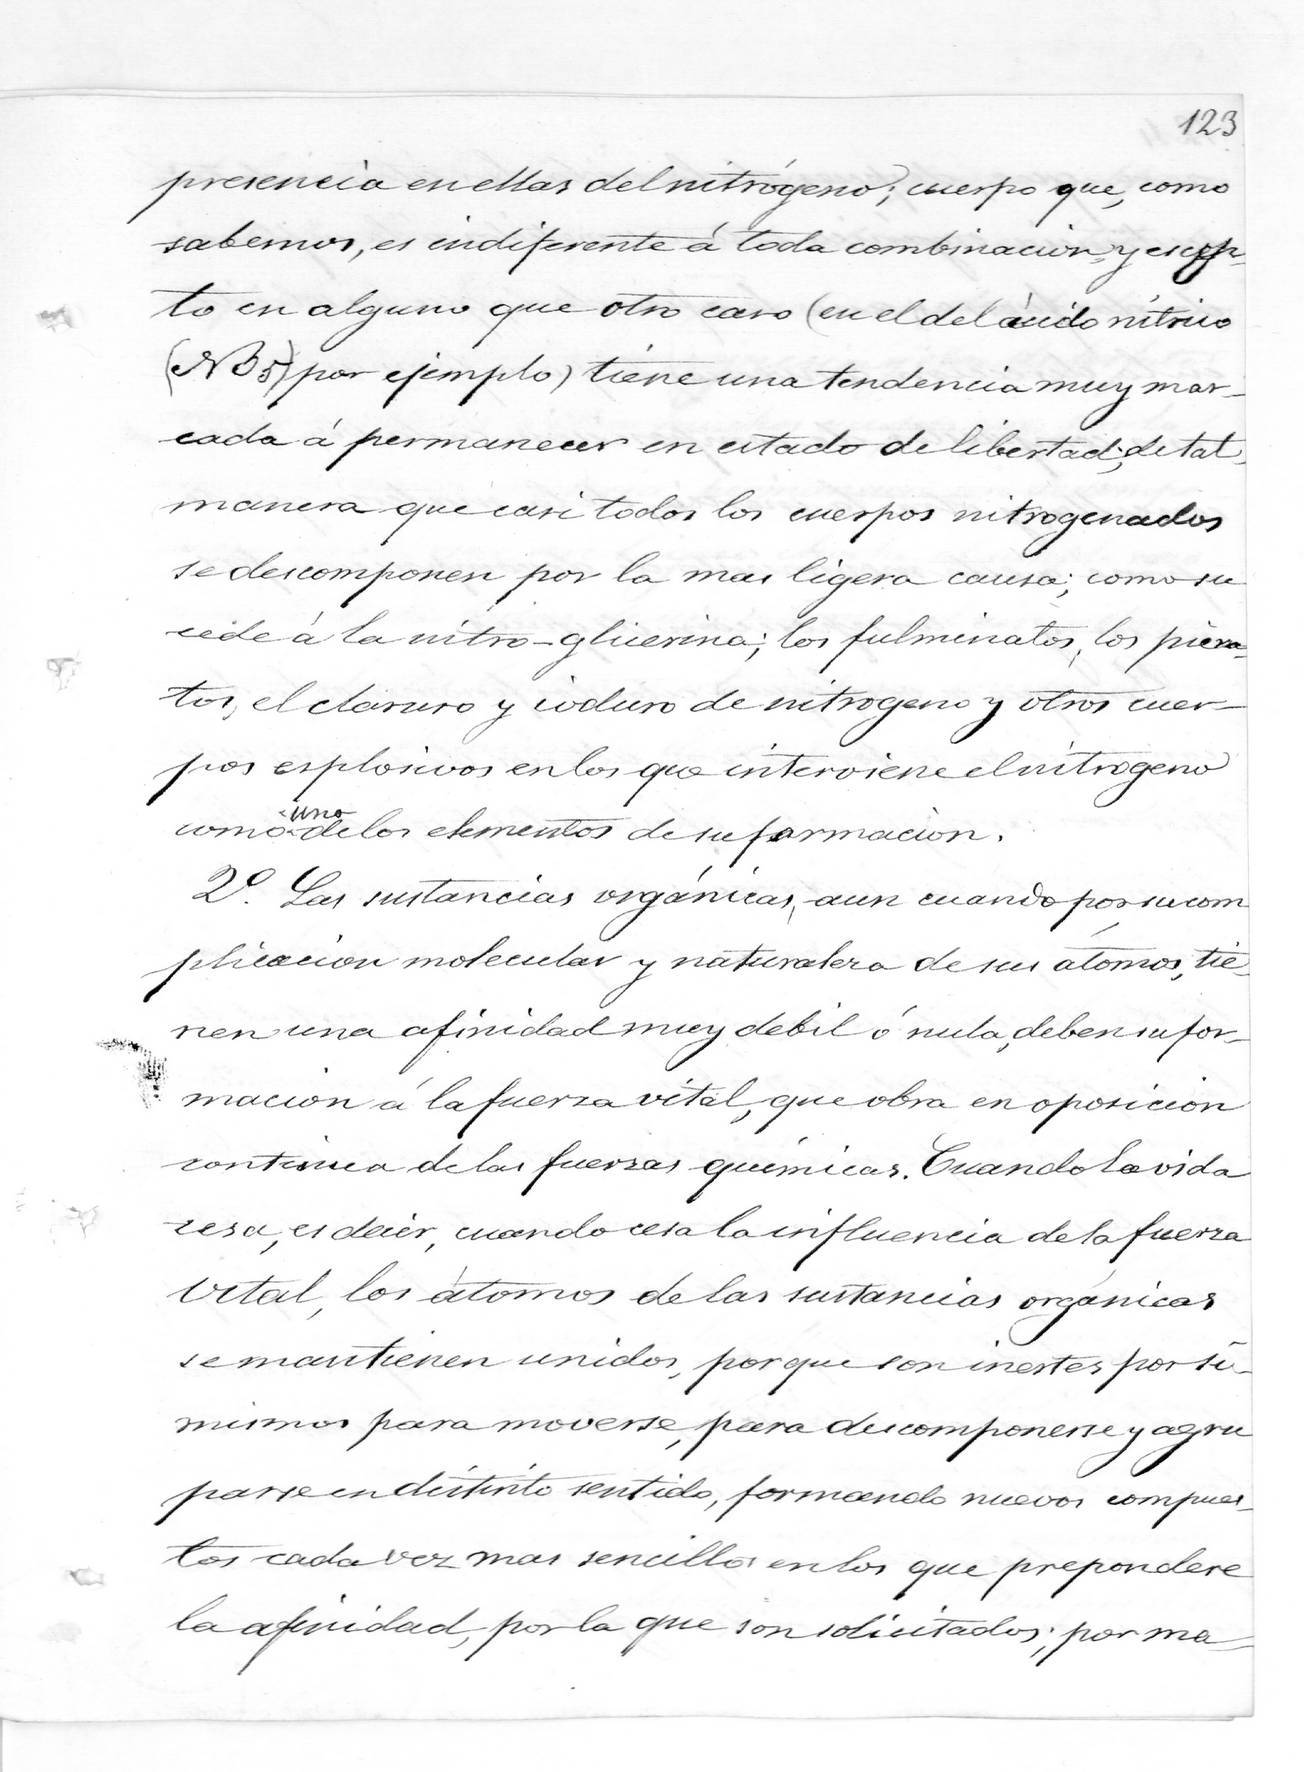 123
presencia en ellas del nitrógeno; cuerpo que, como
sabemos, es indiferente á toda combinacion, y escep-
to en alguno que otro caso (en el del ácido nítrico
por ejemplo) tiene una tendencia muy mar-
cada á permanecer en estado de libertad; de tal
manera que casi todos los cuerpos nitrogenados
se descomponen por la mas ligera causa; como su
cede á la nitro-glicerina; los fulminatos, los picra-
tos, el cloruro y ioduro de nitrogeno y otros cuer-
pos esplosivos en los que interviene el nitrogeno
como uno de los elementos de su formacion.
2º. Las sustancias orgánicas, aun cuando por su com
plicacion molecular y naturaleza de sus átomos, tie-
nen una afinidad muy debil ó nula, deben su for-
macion á la fuerza vital, que obra en oposicion
contínua de las fuerzas químicas. Cuando la vida
cesa, es decir, cuando cesa la influencia de la fuerza
vital, los átomos de las sustancias orgánicas
se mantienen unidos, porque son inertes por sí
mismos para moverse, para descomponerse y agru
parse en distinto sentido, formando nuevos compues-
tos cada vez mas sencillos en los que prepondere
la afinidad, por la que son solicitados; por ma-